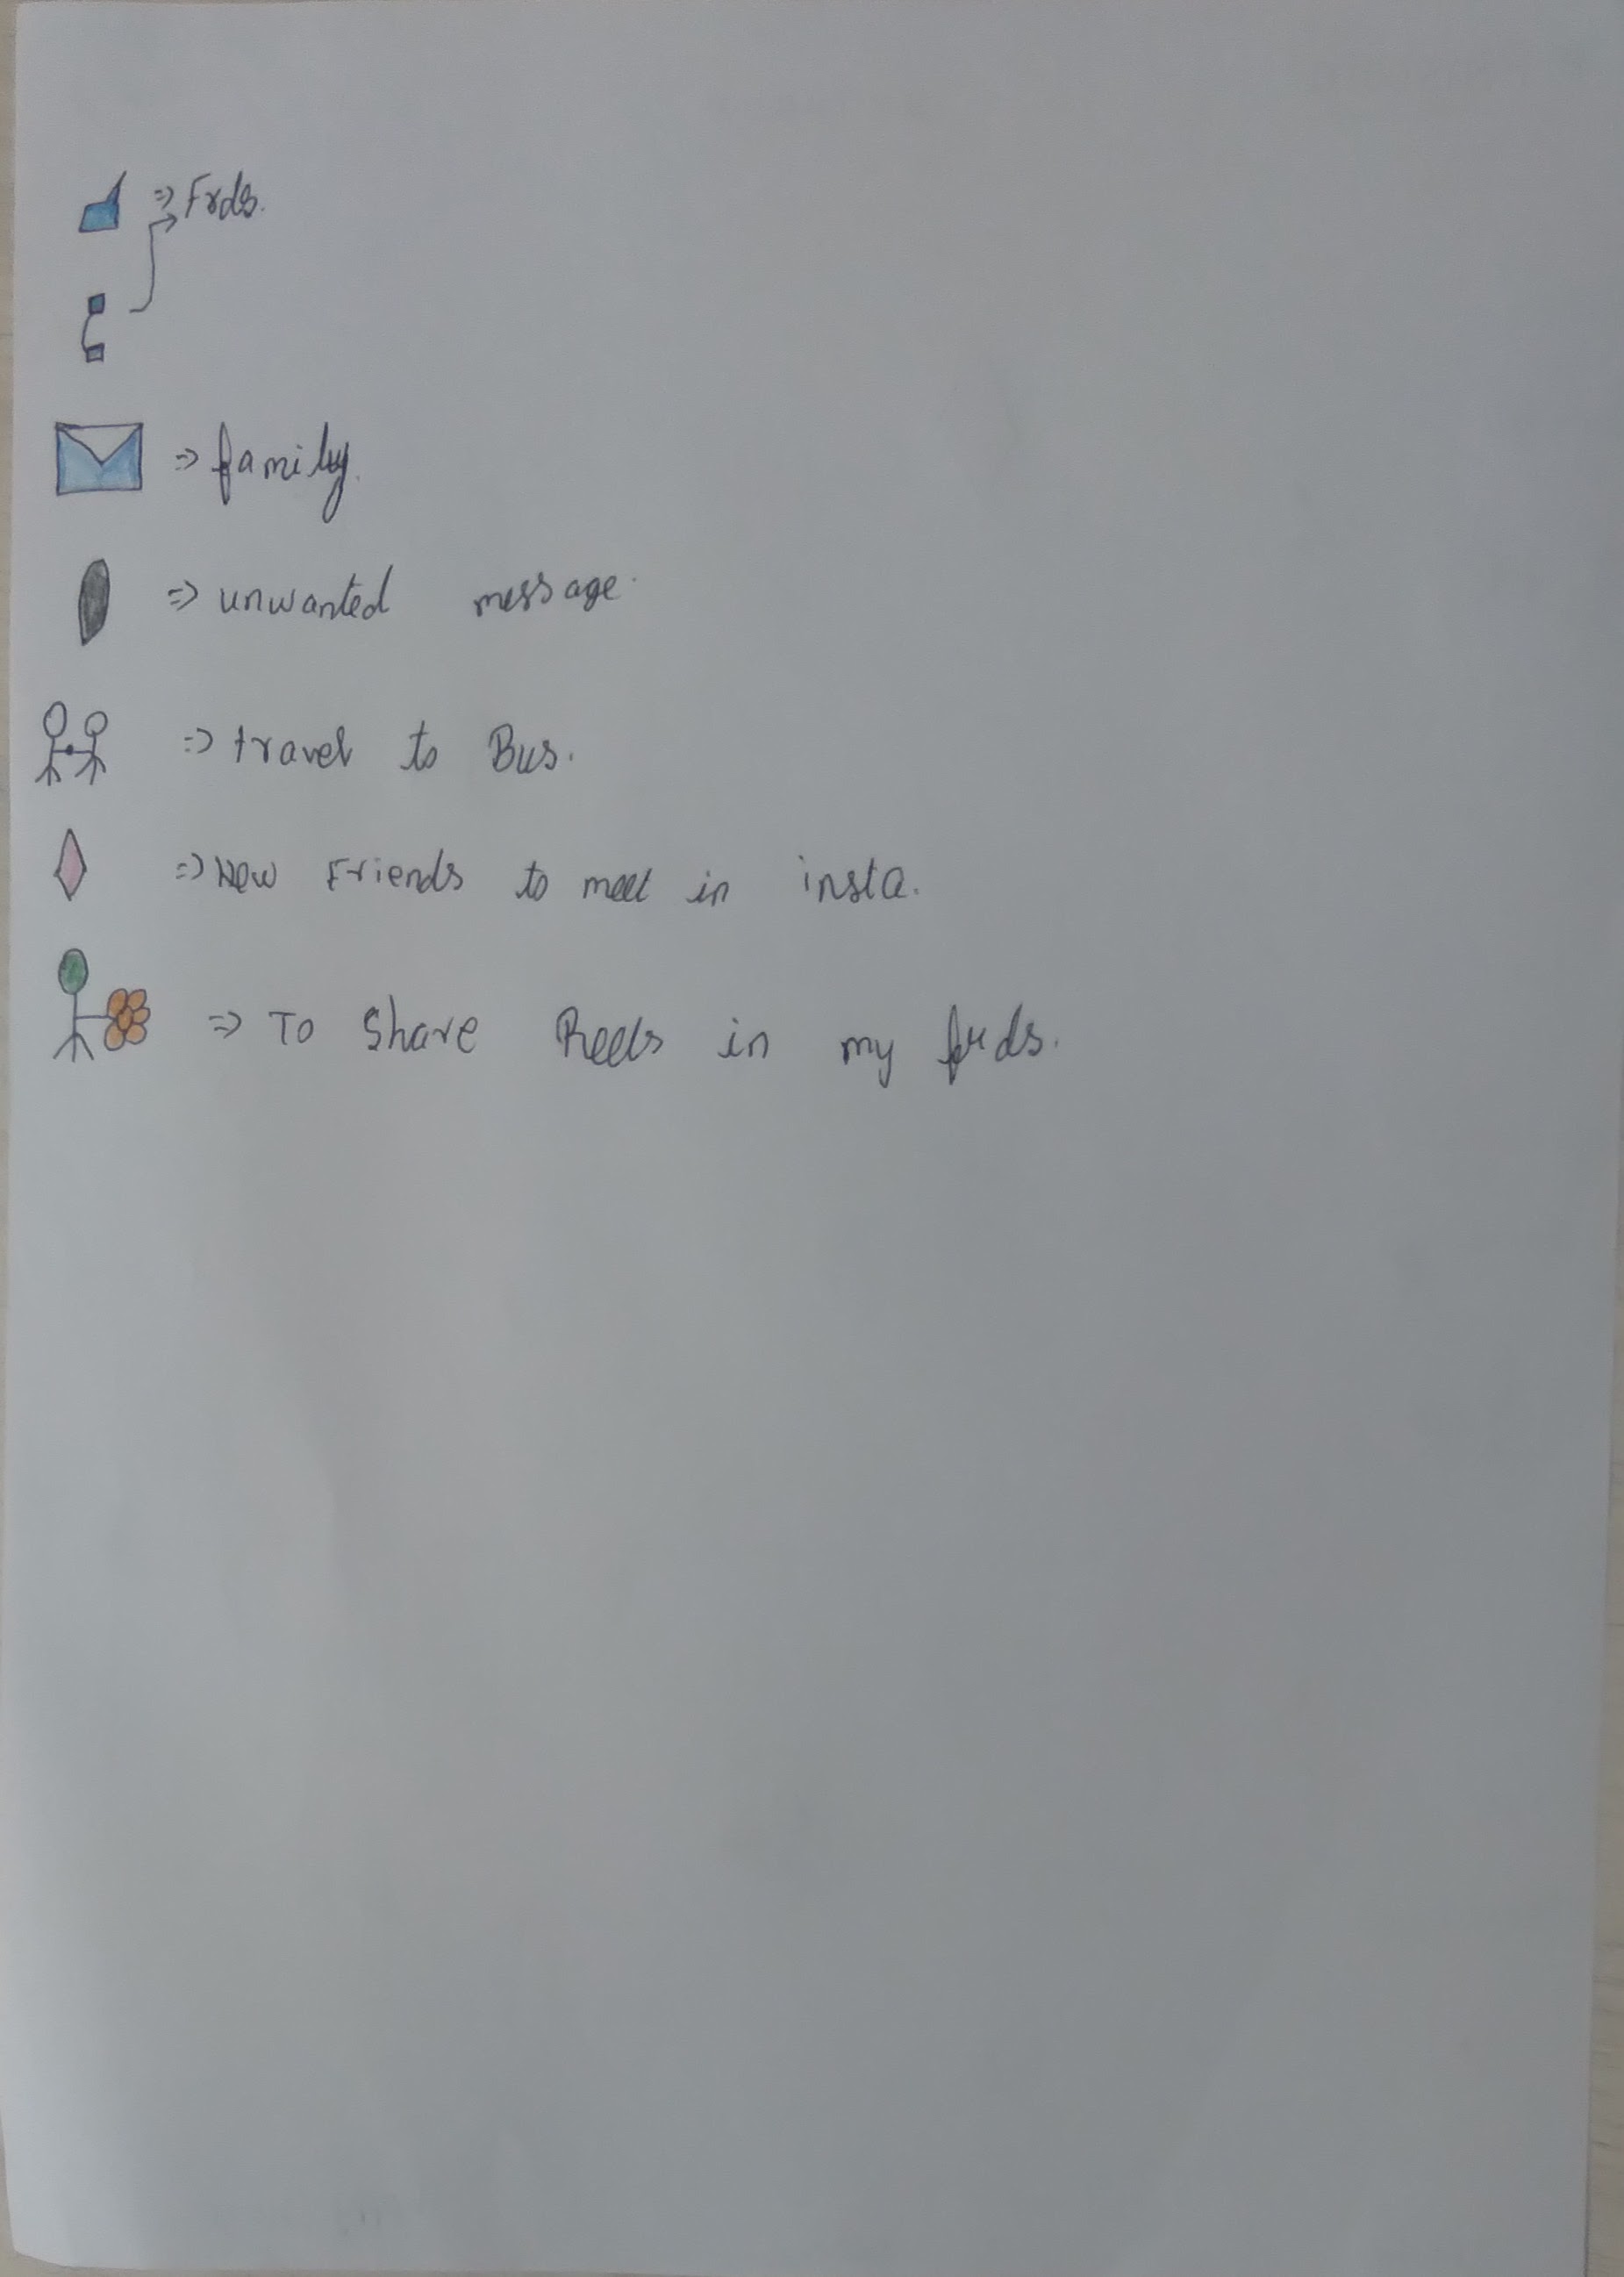 => Frds.
=> family.
=> unwanted message.
=> travel to Bus.
=> New Friends to meet in insta.
=> To Share Reels in my frds.